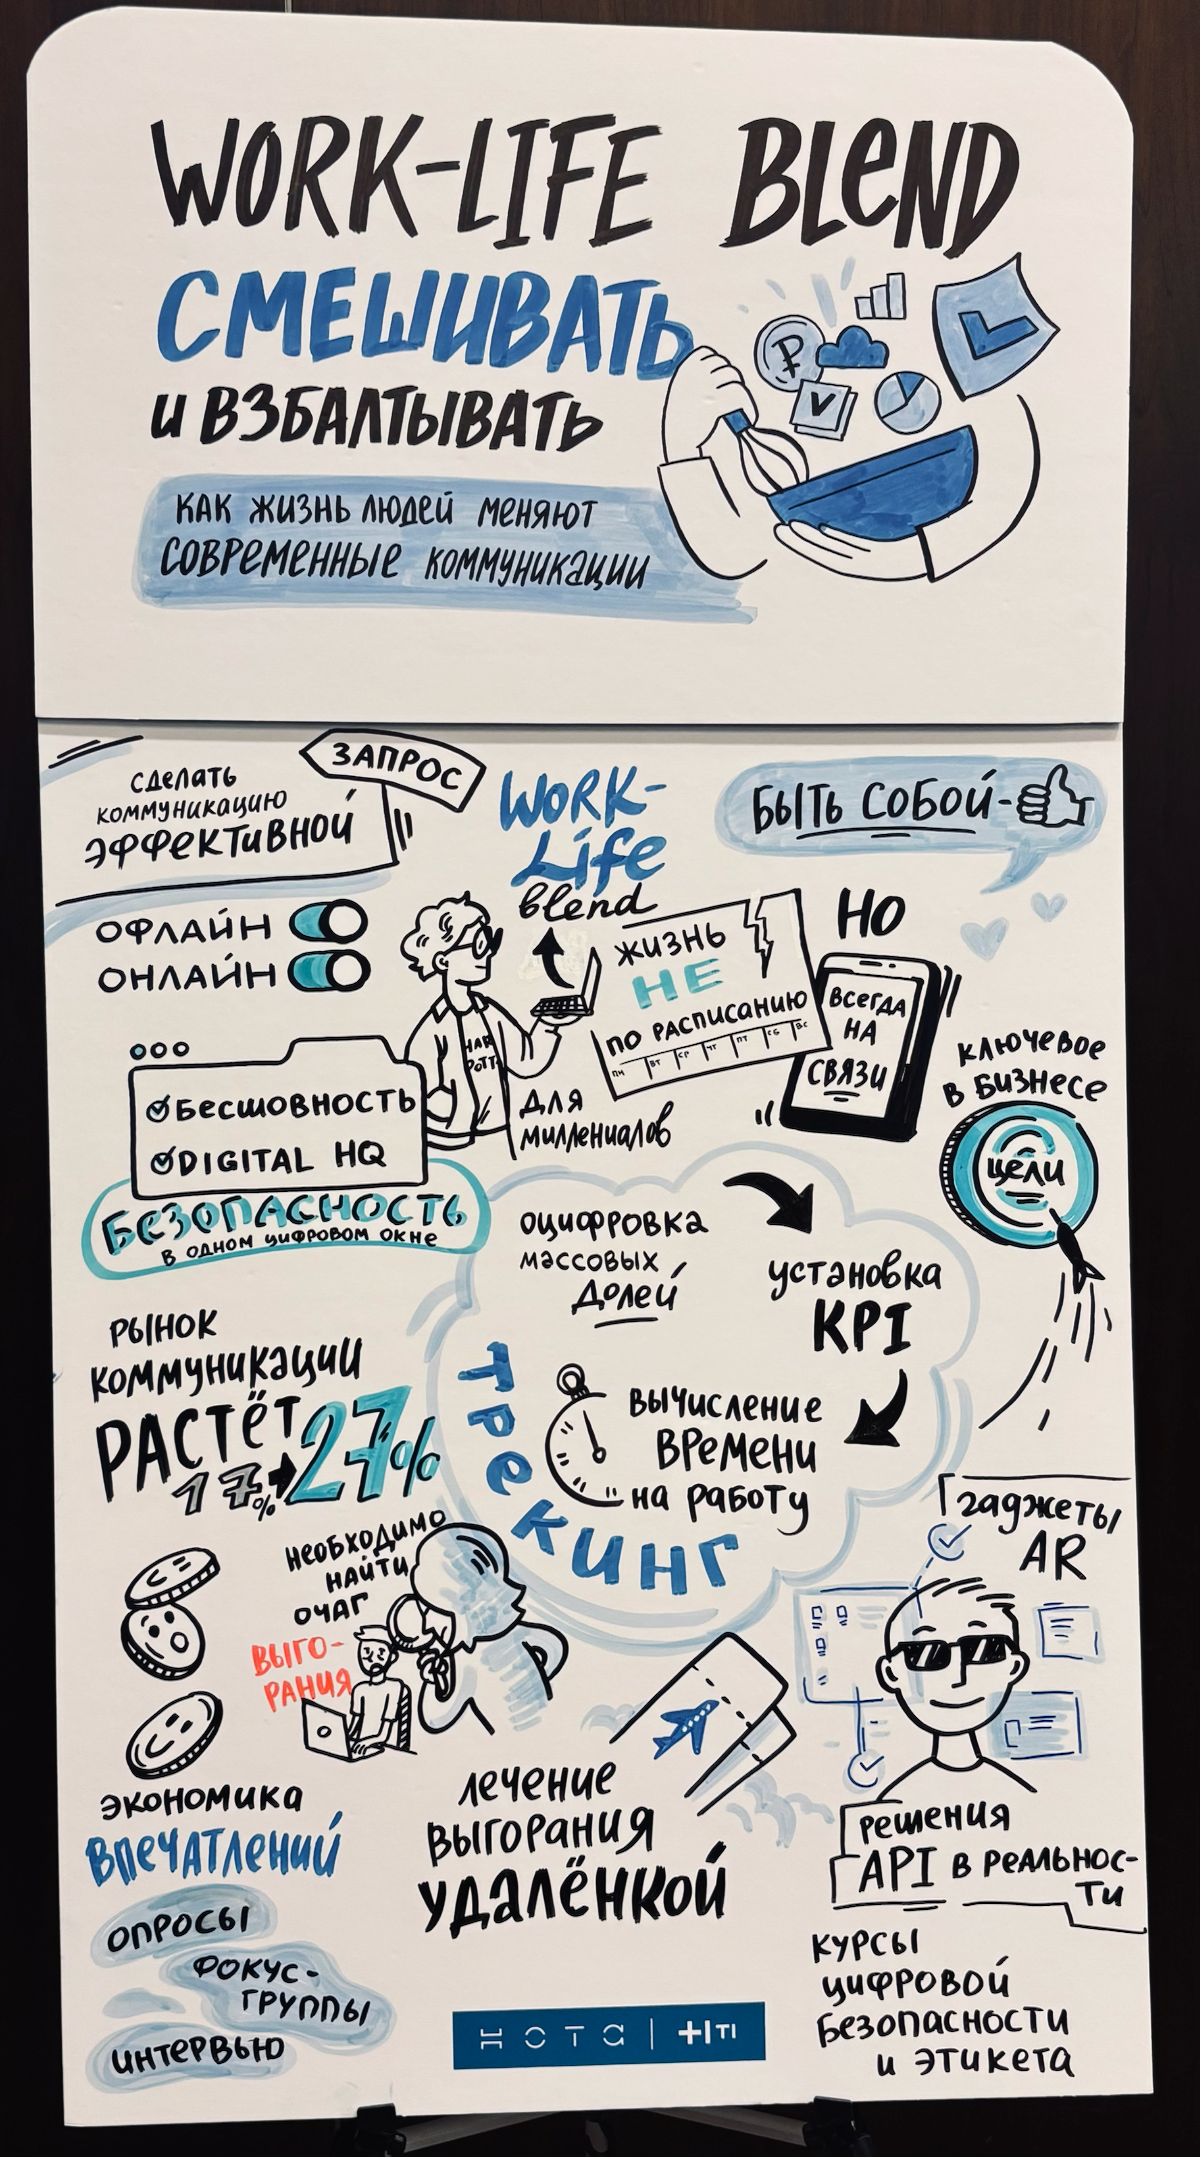 WORK-LIFE BLEND
СМЕШИВАТЬ
и ВЗБАЛТЫВАТЬ
КАК ЖИЗНЬ ЛЮДЕЙ МЕНЯЮТ
СОВРЕМЕННЫЕ КОММУНИКАЦИИ
₽
ЗАПРОС
СДЕЛАТЬ
КОММУНИКАЦИЮ
ЭФФЕКТИВНОЙ
ОФЛАЙН
ОНЛАЙН
WORK-
Life
blend
БЫТЬ СОБОЙ-
НО
ЖИЗНЬ
НЕ
ПО РАСПИСАНИЮ
ПН ВТ СР ЧТ ПТ СБ ВС
ВСЕГДА
НА
СВЯЗИ
HAR
POTT
ДЛЯ
МИЛЛЕНИАЛОВ
БЕСШОВНОСТЬ
DIGITAL HQ
БЕЗОПАСНОСТЬ
В ОДНОМ ЦИФРОВОМ ОКНЕ
КЛЮЧЕВОЕ
В БИЗНЕСЕ
ЦЕЛИ
ОЦИФРОВКА
МАССОВЫХ
ДОЛЕЙ
УСТАНОВКА
KPI
ВЫЧИСЛЕНИЕ
ВРЕМЕНИ
НА РАБОТУ
ТРЕКИНГ
РЫНОК
КОММУНИКАЦИИ
РАСТЁТ
17% 27%
НЕОБХОДИМО
НАЙТИ
ОЧАГ
ВЫГО-
РАНИЯ
ГАДЖЕТЫ
AR
ЭКОНОМИКА
ВПЕЧАТЛЕНИЙ
ОПРОСЫ
ФОКУС-
ГРУППЫ
ИНТЕРВЬЮ
ЛЕЧЕНИЕ
ВЫГОРАНИЯ
УДАЛЁНКОЙ
РЕШЕНИЯ
API В РЕАЛЬНОС-
ТИ
КУРСЫ
ЦИФРОВОЙ
БЕЗОПАСНОСТИ
И ЭТИКЕТА
НОТА | +ITI